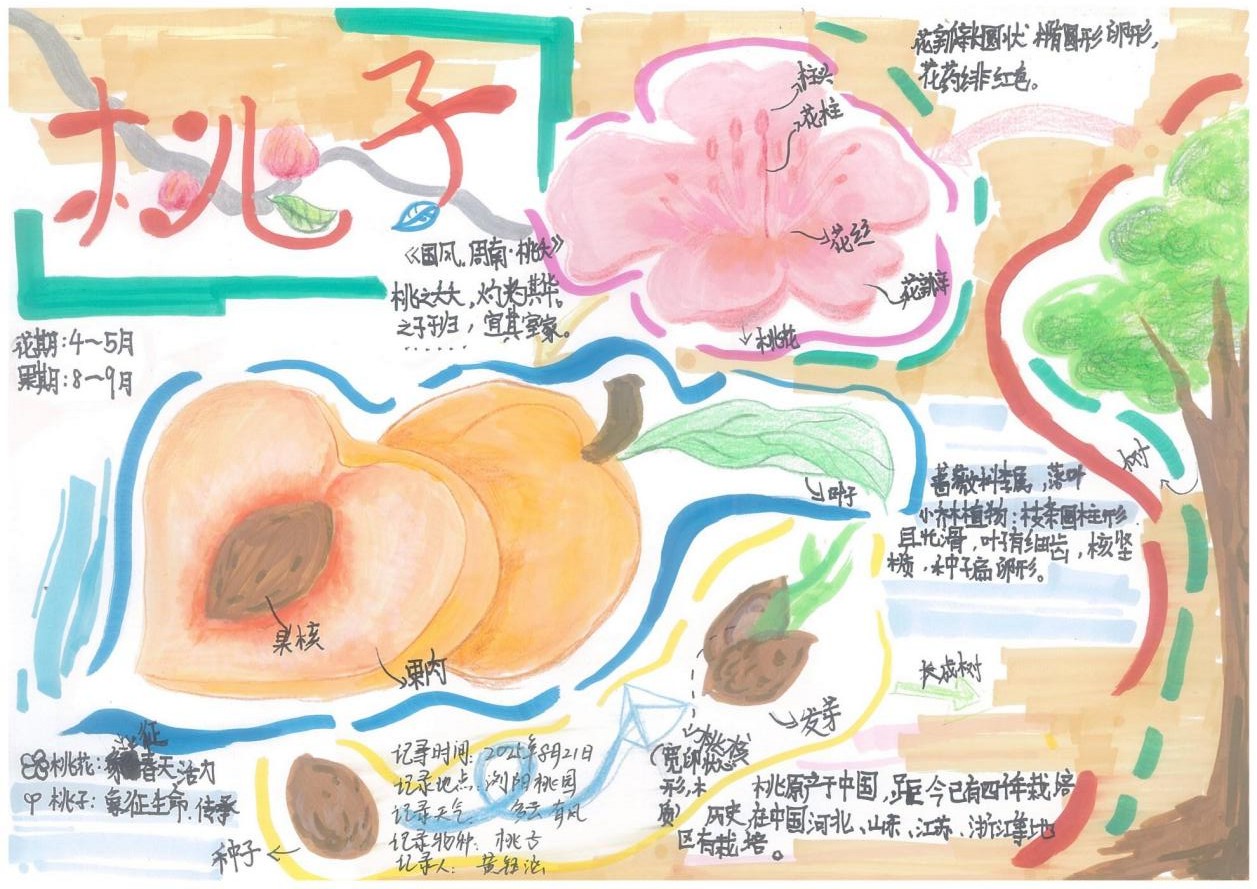 桃子
花瓣长圆状 椭圆形 卵形,
花药绯红色。
柱头
花柱
花丝
花瓣
桃花
《国风.周南·桃夭》
桃之夭夭,灼灼其华。
之子于归,宜其室家。
......
花期:4～5月
果期:8～9月
叶子
树
蔷薇科李属,落叶
小林植物:枝条圆柱形
且光滑,叶子有细齿,核坚
质,种子扁卵形。
果核
果肉
长成树
发芽
桃核
(宽卵状
形,木
质)
桃花:象征春天 活力
桃子:象征生命.传承
种子
记录时间:2025年8月21日
记录地点:浏阳桃园
记录天气:多云 有风
记录物种:桃子
记录人:黄钰
桃原产于中国,距今已有四千年栽培
历史,在中国河北、山东、江苏、浙江等地
区有栽培。